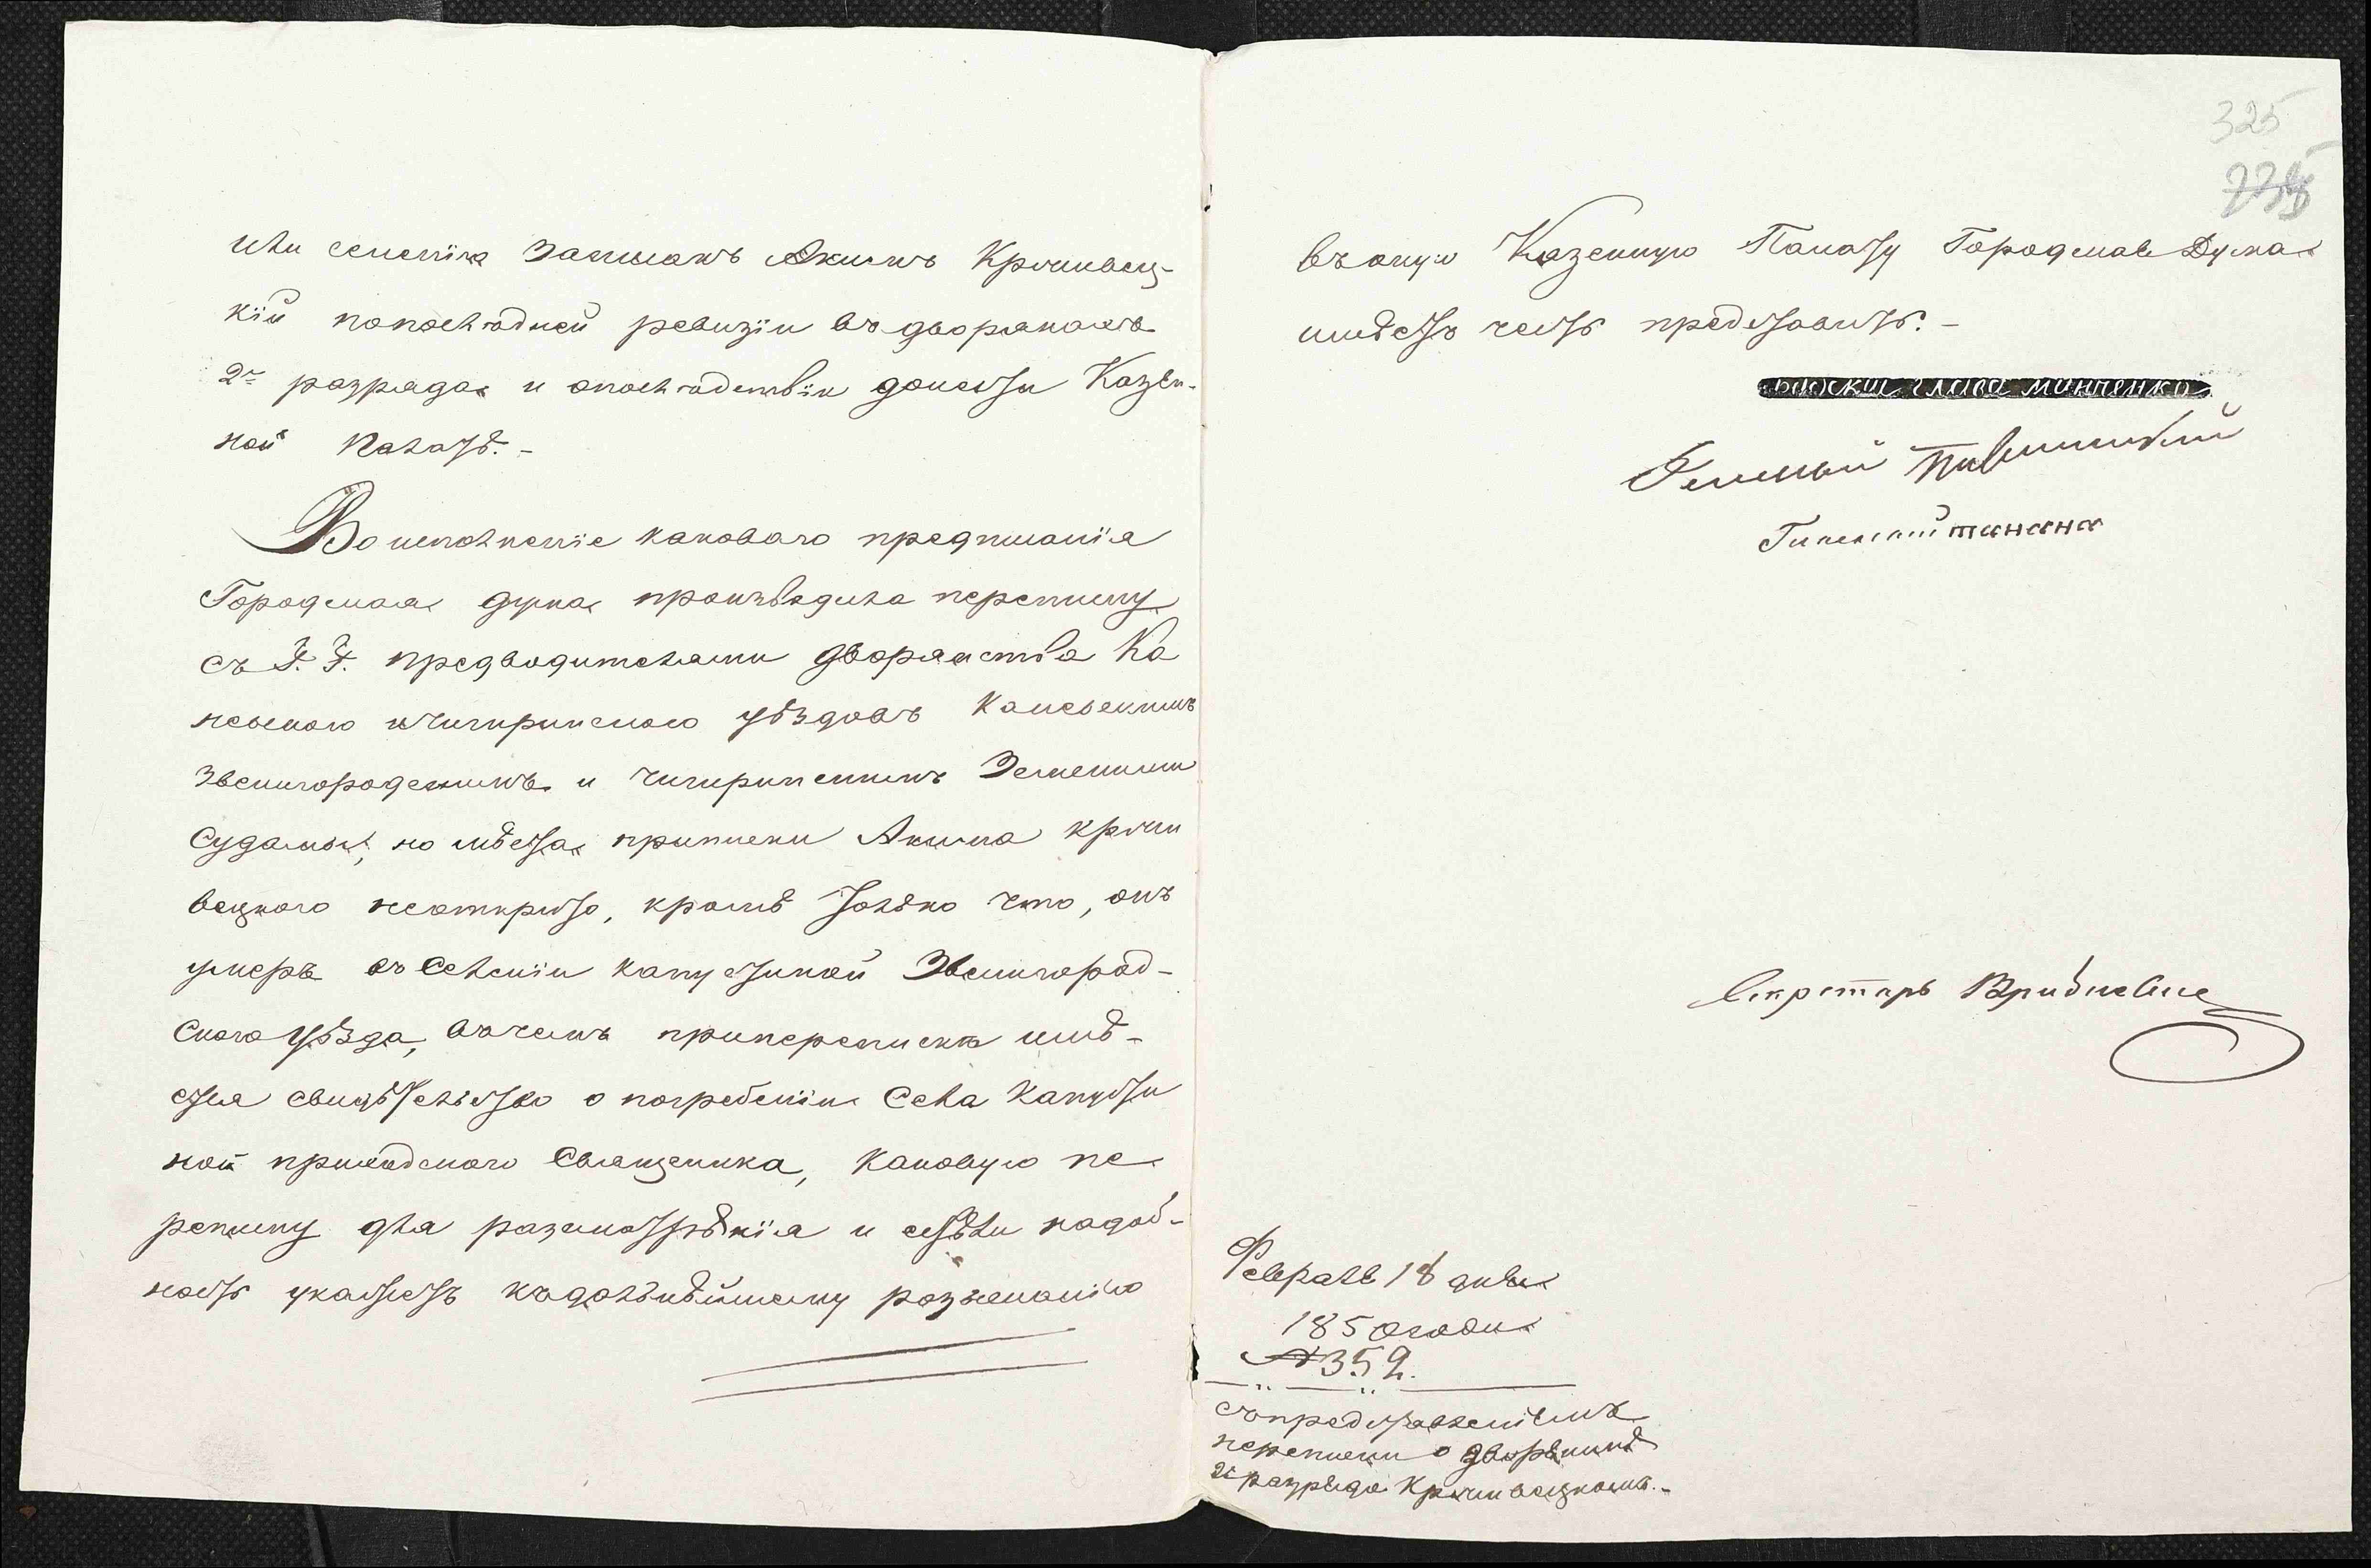 или селенiя записанъ Акимъ Крочивец-
кiй попослѣдней ревизiи въ дворянахъ
2го разряда и опослѣдствiи донести Казен-
ной Палатѣ.-
Во исполненiе каковаго предписанiя
Городская дума производила переписку
съ Г. Г. предводителями дворянства Ка
невскаго и Чигиринскаго уѣздовъ Каневскимъ
Звенигородскимъ и Чигиринскимъ Земскими
Судами, но мѣста приписки Акима Крочи
вецкаго неоткрыто, кромѣ только что, онъ
умеръ въ Селенiи Капустиной Звенигород-
скаго уѣзда, вчемъ припереписки имѣ-
ется свидѣтельство о погребенiи Села Капусти
ной приходскаго Священика, каковую пе-
реписку для разсмотрѣнiя и если надоб-
ность укажетъ къдольнѣйшему розысканiю
325
въоную Казенную Палату Городская Дума
имѣетъ честь представить.-
глава Минченко
Гласный
Секретарь
Февраля 18 дня
1850 года
№ 352.
съпредставленiемъ
переписки о дворянинѣ
2го разряда Крочивецкомъ.-